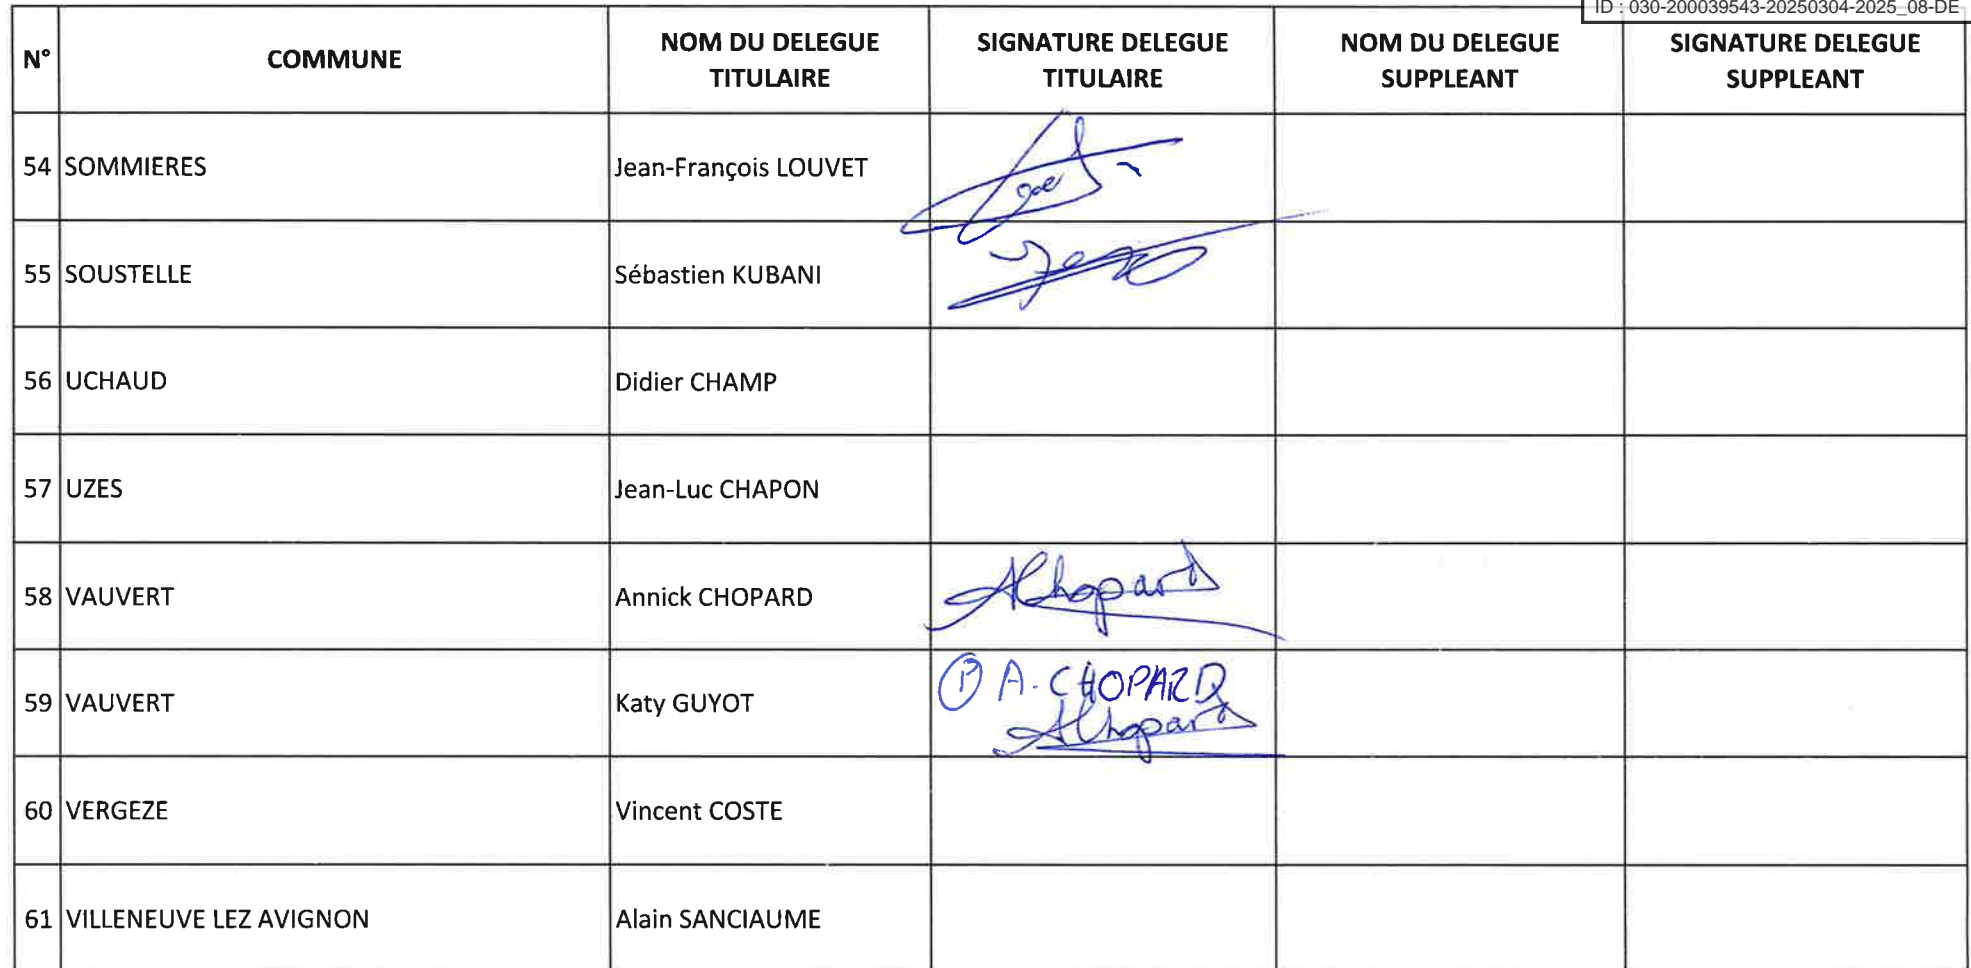 ID : 030-200039543-20250304-2025_08-DE
N° COMMUNE NOM DU DELEGUE TITULAIRE SIGNATURE DELEGUE TITULAIRE NOM DU DELEGUE SUPPLEANT SIGNATURE DELEGUE SUPPLEANT
54 SOMMIERES Jean-François LOUVET
55 SOUSTELLE Sébastien KUBANI
56 UCHAUD Didier CHAMP
57 UZES Jean-Luc CHAPON
58 VAUVERT Annick CHOPARD AChopard
59 VAUVERT Katy GUYOT P A. CHOPARD
AChopard
60 VERGEZE Vincent COSTE
61 VILLENEUVE LEZ AVIGNON Alain SANCIAUME